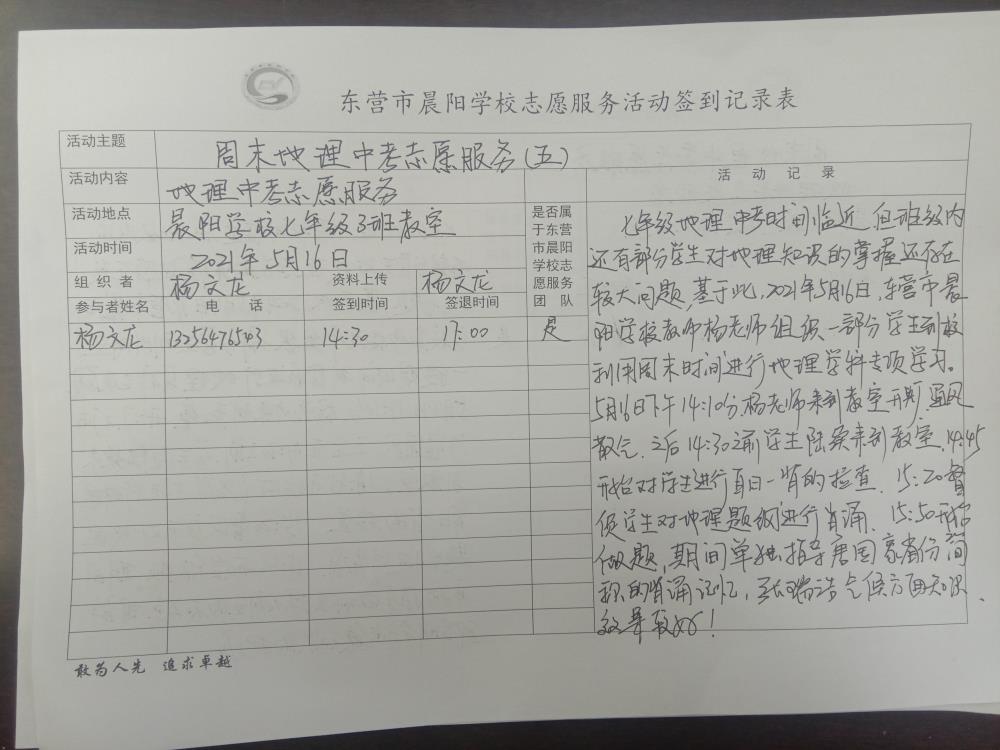 东营市晨阳学校志愿服务活动签到记录表
活动主题 周末地理中考志愿服务(五)
活动内容 地理中考志愿服务
活动地点 晨阳学校七年级3班教室
活动时间 2021年5月16日
组织者 杨文龙 资料上传 杨文龙
参与者姓名 电话 签到时间 签退时间
是否属
于东营
市晨阳
学校志
愿服务
团队
杨文龙 13256476543 14:30 17:00 是
活动记录
七年级地理中考时间临近,但班级内
还有部分学生对地理知识的掌握还存在
较大问题,基于此,2021年5月16日,东营市晨
阳学校教师杨老师组织一部分学生到校
利用周末时间进行地理学科专项学习。
5月16日下午14:10分杨老师来到教室开门通风
散气,之后14:30之前学生陆续来到教室,14:45
开始对学生进行每日一背的检查,15:20督
促学生对地理题纲进行背诵,15:50开始
做题,期间单独指导唐国家省份简
称的背诵记忆,气候方面知识,
效果较好!
敢为人先 追求卓越